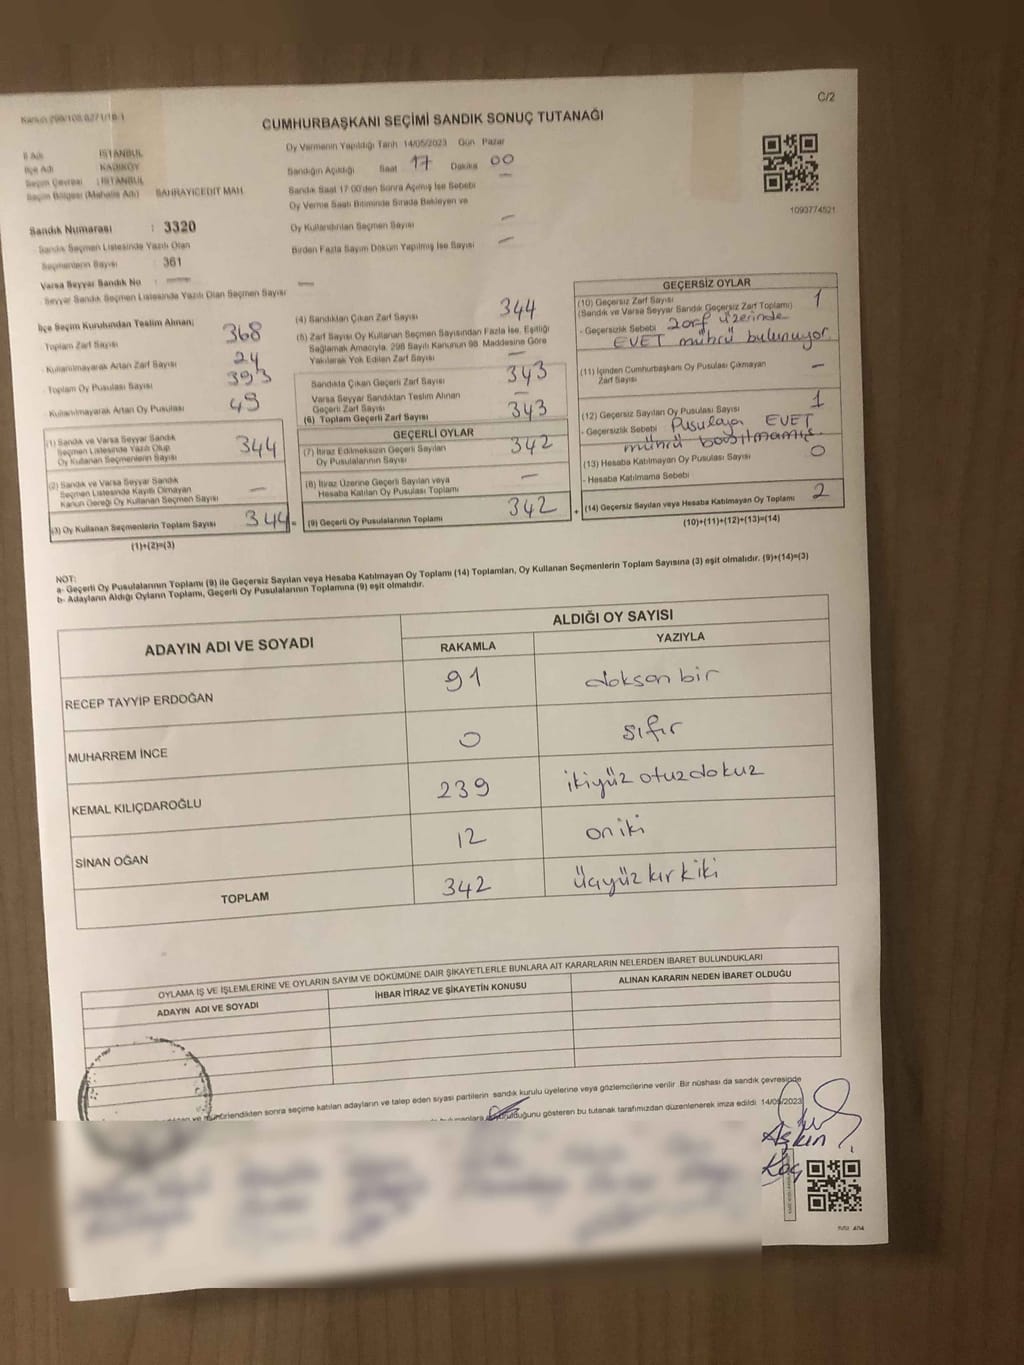 C/2
CUMHURBAŞKANI SEÇİMİ SANDIK SONUÇ TUTANAĞI
İl Adı : İSTANBUL
İlçe Adı : KADIKÖY
Seçim Çevresi : İSTANBUL
Seçim Bölgesi (Mahalle Adı) SAHRAYICEDİT MAH.
Sandık Numarası : 3320
Sandık Seçmen Listesinde Yazılı Olan
Seçmenlerin Sayısı : 361
Varsa Seyyar Sandık No : —
Seyyar Sandık Seçmen Listesinde Yazılı Olan Seçmen Sayısı —
Oy Vermenin Yapıldığı Tarih 14/05/2023 Gün Pazar
Sandığın Açıldığı Saat 17 Dakika 00
Sandık Saat 17:00'den Sonra Açımış İse Sebebi —
Oy Verme Saati Bitiminde Sırada Bekleyen ve
Oy Kullandırılan Seçmen Sayısı —
Birden Fazla Sayım Döküm Yapılmış İse Sayısı —
1093774521
İlçe Seçim Kurulundan Teslim Alınan;
- Toplam Zarf Sayısı 368
- Kullanılmayarak Artan Zarf Sayısı 24
- Toplam Oy Pusulası Sayısı 393
- Kullanılmayarak Artan Oy Pusulası 49
(1) Sandık ve Varsa Seyyar Sandık
Seçmen Listesinde Yazılı Olup
Oy Kullanan Seçmenlerin Sayısı 344
(2) Sandık ve Varsa Seyyar Sandık
Seçmen Listesinde Kayıtlı Olmayan
Kanun Gereği Oy Kullanan Seçmen Sayısı —
(3) Oy Kullanan Seçmenlerin Toplam Sayısı 344 =
(1)+(2)=(3)
(4) Sandıktan Çıkan Zarf Sayısı 344
(5) Zarf Sayısı Oy Kullanan Seçmen Sayısından Fazla İse, Eşitliği
Sağlamak Amacıyla, 298 Sayılı Kanunun 98. Maddesine Göre
Yakılarak Yok Edilen Zarf Sayısı —
Sandıkta Çıkan Geçerli Zarf Sayısı 343
Varsa Seyyar Sandıktan Teslim Alınan
Geçerli Zarf Sayısı —
(6) Toplam Geçerli Zarf Sayısı 343
GEÇERLİ OYLAR
(7) İtiraz Edilmeksizin Geçerli Sayılan
Oy Pusulasının Sayısı 342
(8) İtiraz Üzerine Geçerli Sayılan veya
Hesaba Katılan Oy Pusulası Toplamı —
(9) Geçerli Oy Pusulalarının Toplamı 342 +
GEÇERSİZ OYLAR
(10) Geçersiz Zarf Sayısı
(Sandık ve Varsa Seyyar Sandık Geçersiz Zarf Toplamı) 1
- Geçersizlik Sebebi Zarf üzerinde
EVET mührü bulunuyor.
(11) İçinden Cumhurbaşkanı Oy Pusulası Çıkmayan
Zarf Sayısı —
(12) Geçersiz Sayılan Oy Pusulası Sayısı 1
- Geçersizlik Sebebi Pusulaya EVET
mührü basılmamış
(13) Hesaba Katılmayan Oy Pusulası Sayısı 0
- Hesaba Katılmama Sebebi
(14) Geçersiz Sayılan veya Hesaba Katılmayan Oy Toplamı 2
(10)+(11)+(12)+(13)=(14)
NOT:
a- Geçerli Oy Pusulalarının Toplamı (9) ile Geçersiz Sayılan veya Hesaba Katılmayan Oy Toplamı (14) Toplamları, Oy Kullanan Seçmenlerin Toplam Sayısına (3) eşit olmalıdır. (9)+(14)=(3)
b- Adayların Aldığı Oyların Toplamı, Geçerli Oy Pusulalarının Toplamına (9) eşit olmalıdır.
ADAYIN ADI VE SOYADI ALDIĞI OY SAYISI
RAKAMLA YAZIYLA
RECEP TAYYİP ERDOĞAN 91 doksan bir
MUHARREM İNCE 0 sıfır
KEMAL KILIÇDAROĞLU 239 ikiyüz otuzdokuz
SİNAN OĞAN 12 on iki
TOPLAM 342 üçyüz kırkiki
OYLAMA İŞ VE İŞLEMLERİNE VE OYLARIN SAYIM VE DÖKÜMÜNE DAİR ŞİKAYETLERLE BUNLARA AİT KARARLARIN NELERDEN İBARET BULUNDUKLARI
ADAYIN ADI VE SOYADI İHBAR İTİRAZ VE ŞİKAYETİN KONUSU ALINAN KARARIN NEDEN İBARET OLDUĞU
sonra seçime katılan adayların ve talep eden siyasi partilerin sandık kurulu üyelerine veya gözlemcilerine verilir. Bir nüshası da sandık çevresinde
gösteren bu tutanak tarafımızdan düzenlenerek imza edildi. 14/05/2023
Aşkın
Koç